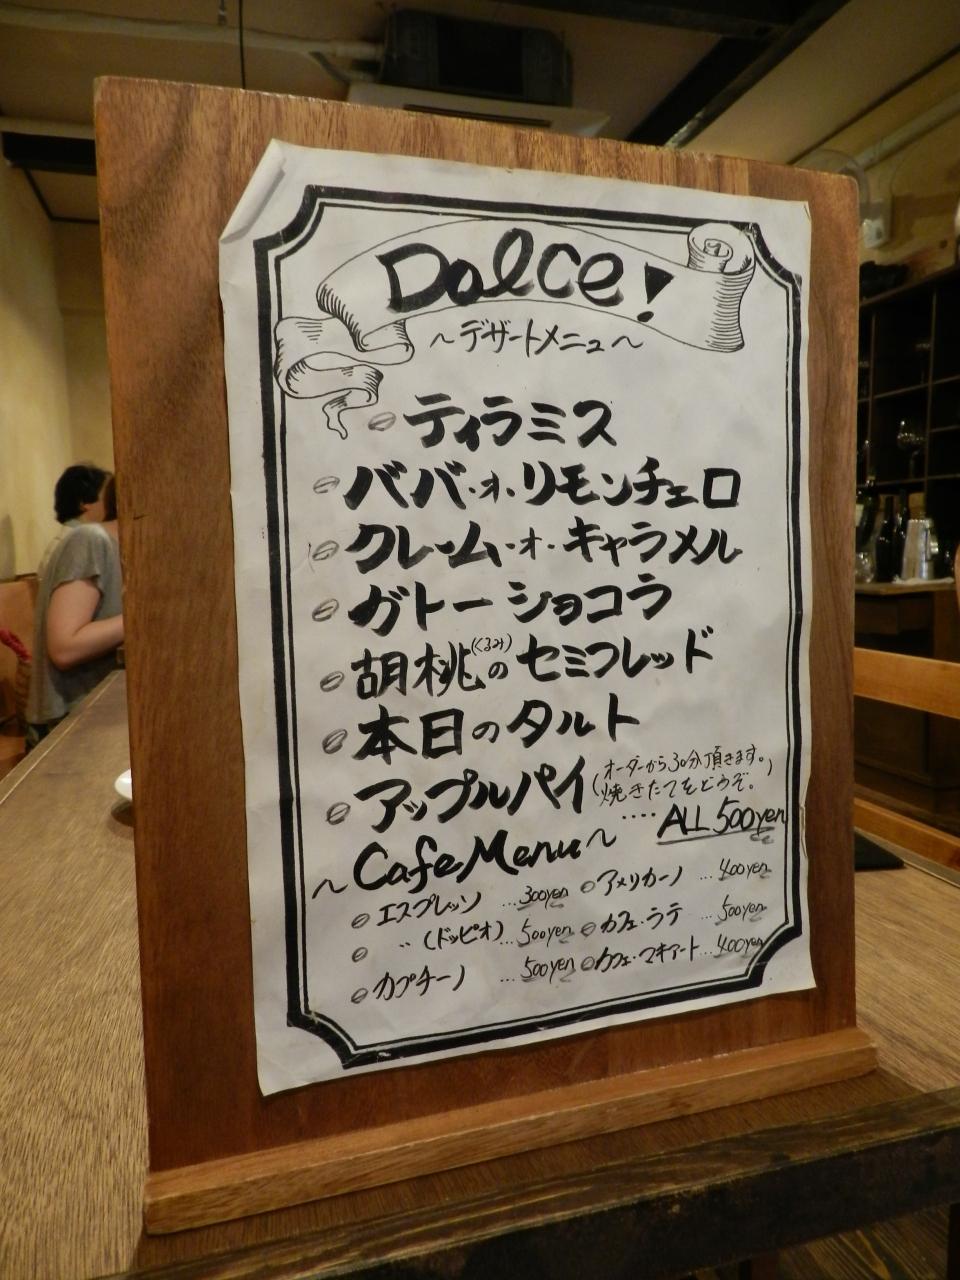 Dolce!
～デザートメニュー～
ティラミス
ババ・オ・リモンチェロ
クレーム・オ・キャラメル
ガトーショコラ
胡桃(くるみ)のセミフレッド
本日のタルト
アップルパイ(オーダーから30分頂きます。
焼きたてをどうぞ。)
････ALL 500yen
～Cafe Menu～
エスプレッソ …300yen アメリカーノ …400yen
〃(ドッピオ)…500yen カフェ・ラテ …500yen
カプチーノ …500yen カフェ・マキアート…400yen